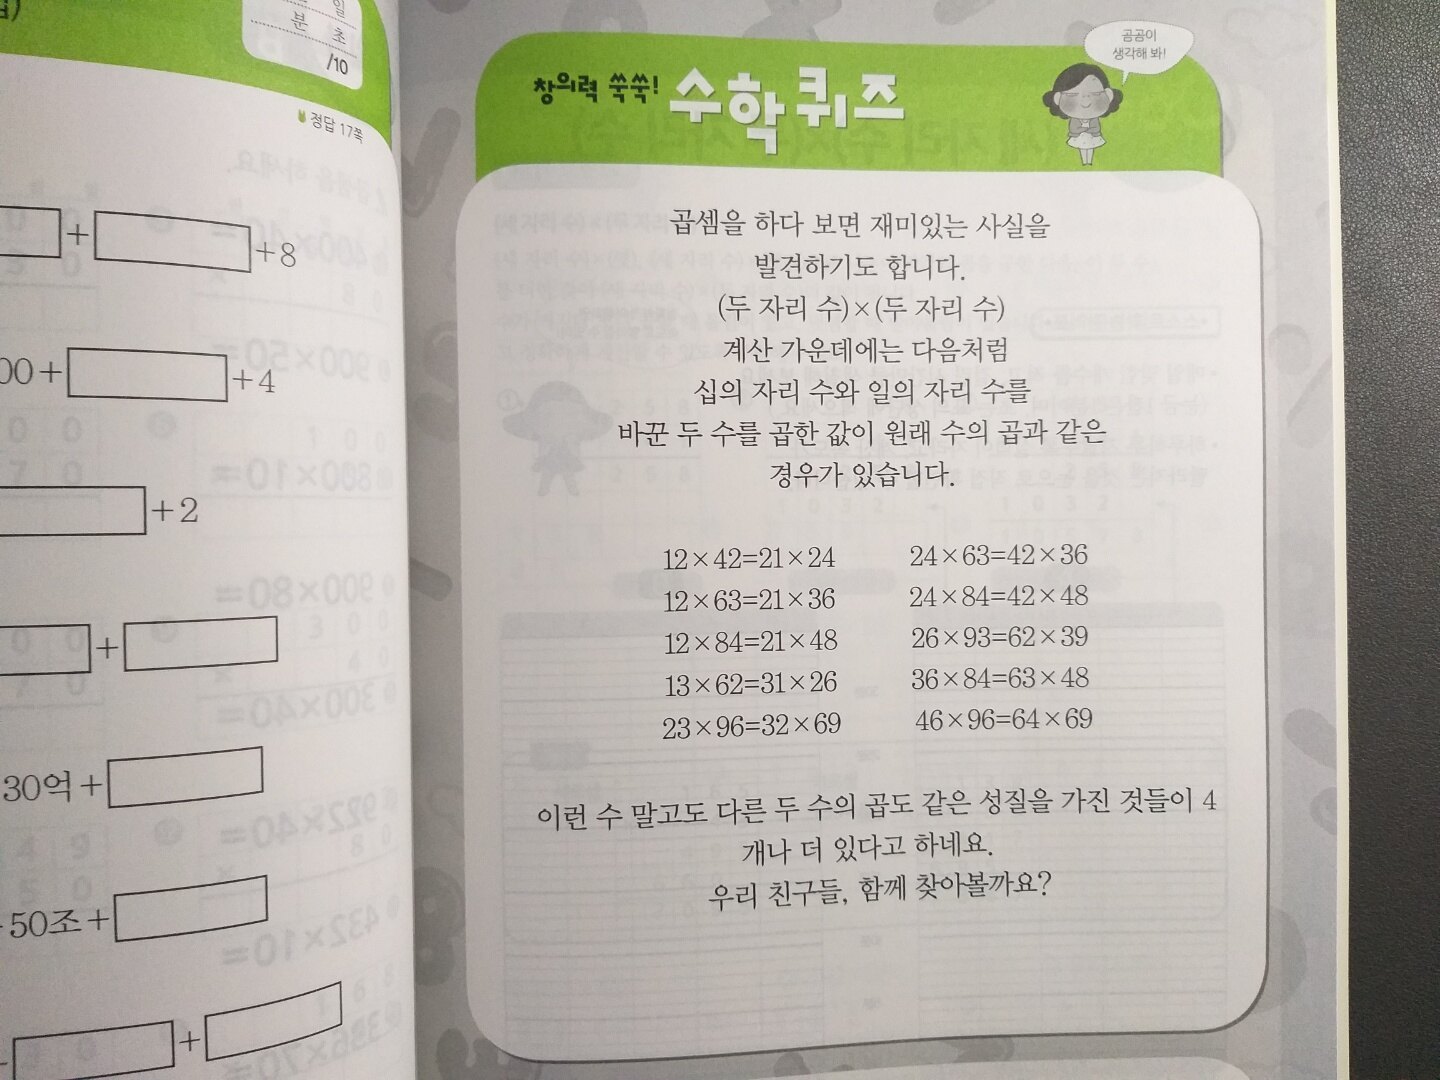 일
분 초
/10
정답 17쪽
+ +8
00+ +4
+2
+
30억+
50조+
+
창의력 쑥쑥! 수학 퀴즈
곰곰이
생각해 봐!
곱셈을 하다 보면 재미있는 사실을
발견하기도 합니다.
(두 자리 수)×(두 자리 수)
계산 가운데에는 다음처럼
십의 자리 수와 일의 자리 수를
바꾼 두 수를 곱한 값이 원래 수의 곱과 같은
경우가 있습니다.
12×42=21×24 24×63=42×36
12×63=21×36 24×84=42×48
12×84=21×48 26×93=62×39
13×62=31×26 36×84=63×48
23×96=32×69 46×96=64×69
이런 수 말고도 다른 두 수의 곱도 같은 성질을 가진 것들이 4
개나 더 있다고 하네요.
우리 친구들, 함께 찾아볼까요?